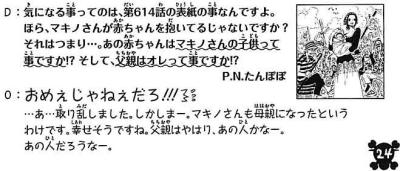 D：気になる事ってのは、第614話の表紙の事なんですよ。
ほら、マキノさんが赤ちゃんを抱いてるじゃないですか？
それはつまり…。あの赤ちゃんはマキノさんの子供って
事ですか!? そして、父親はオレって事ですか!?
P.N.たんぽぽ
O：おめぇじゃねぇだろ!!!
…あ…取り乱しました。しかしまー。マキノさんも母親になったという
わけです。幸せそうですね。父親はやはり、あの人かなー。
あの人だろうなー。
24